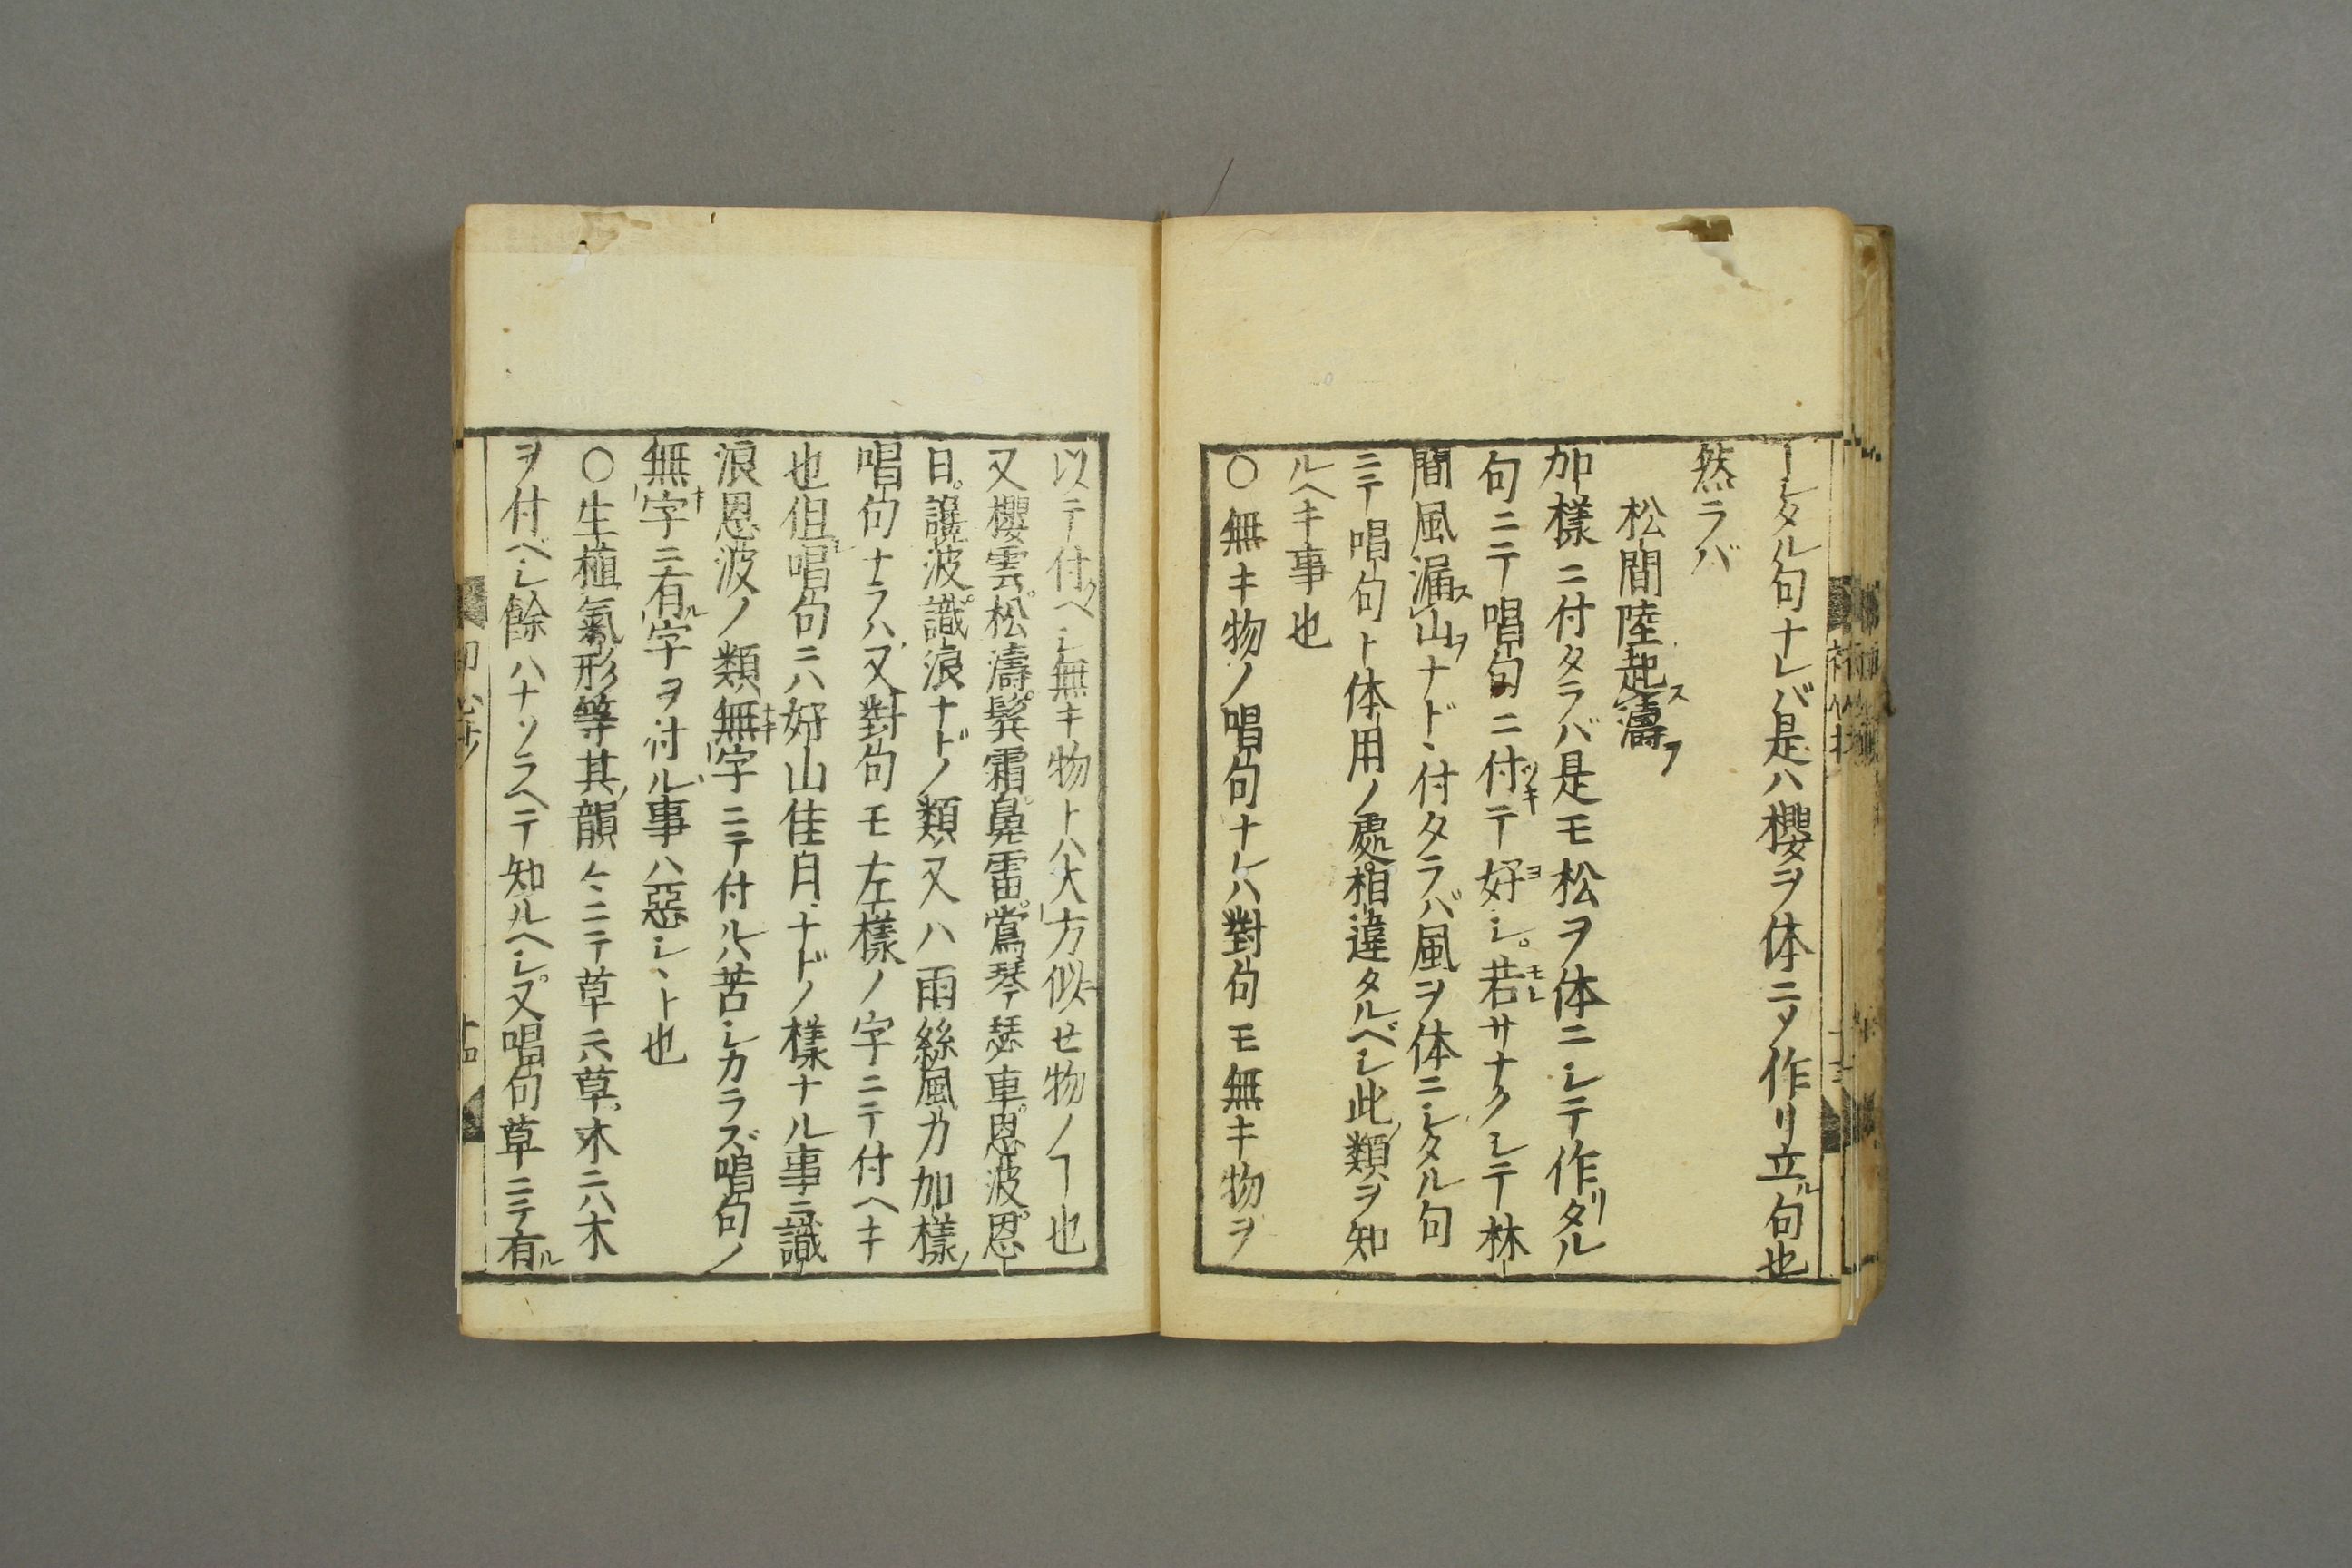 ーシタル句ナレバ是ハ櫻ヲ体ニメ作リ立ル句也
然ラバ
松間陸起スレ濤ヲ
加樣ニ付タラバ是モ松ヲ体ニシテ作リタル
句ニテ唱句ニ付ツキテ好ヨシ。若モシサナクシテ林
間風漏スレ山ヲナド付タラバ風ヲ体ニシタル句
ニテ唱句ト体用ノ處相違タルベシ此ノ類ヲ知
ルヘキ事也
〇無キ物ノ唱句ナレハ對句モ無キ物ヲ
以テ付クヘシ無キ物トハ大方似セ物ノヿ也
又櫻雲。松濤。鬂霜。鼻雷。鶯琴瑟車。恩波。恩
日。讓波。識浪ナドノ類又ハ雨絲風刀加樣ノ
唱句ナラハ又對句モ左樣ノ字ニテ付ヘキ
也但唱句ニハ好山佳月ナドノ樣ナル事ニ識
浪恩波ノ類無キ字ニテ付ルハ苦シカラズ唱句ノ
無キ字ニ有ル字ヲ付ル事ハ惡シヽト也
〇生植氣形等其ノ韻々ニテ草ニハ草。木ニハ木
ヲ付ベシ餘ハナソラヘテ知ルヘシ。又唱句草ニテ有ル